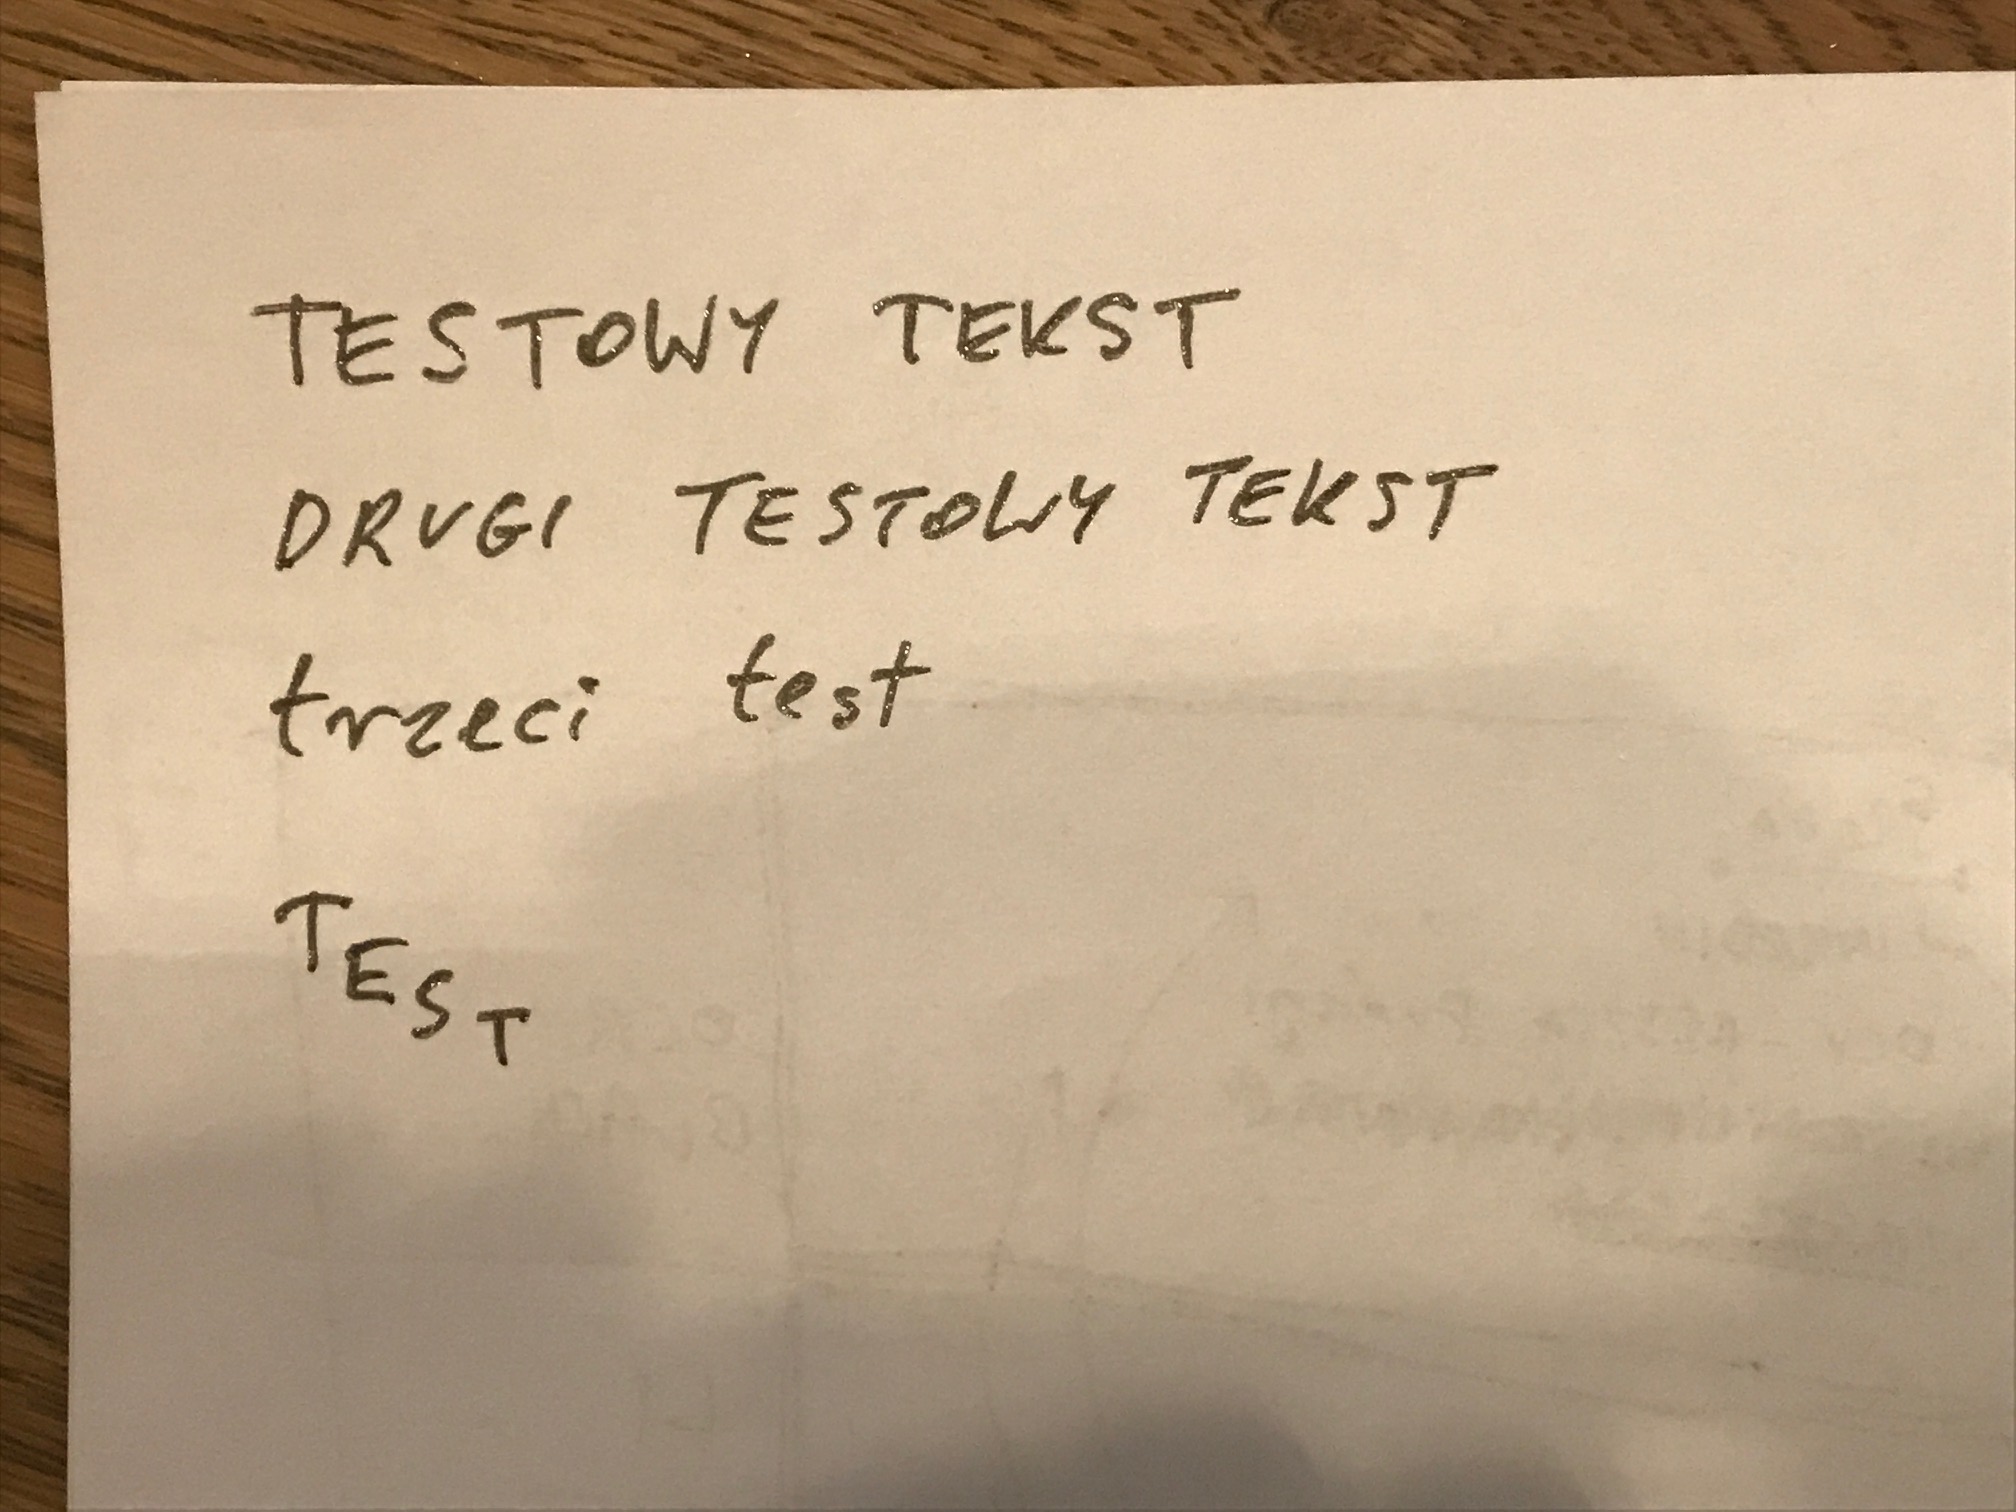 TESTOWY TEKST
DRUGI TESTOWY TEKST
trzeci test
TEST